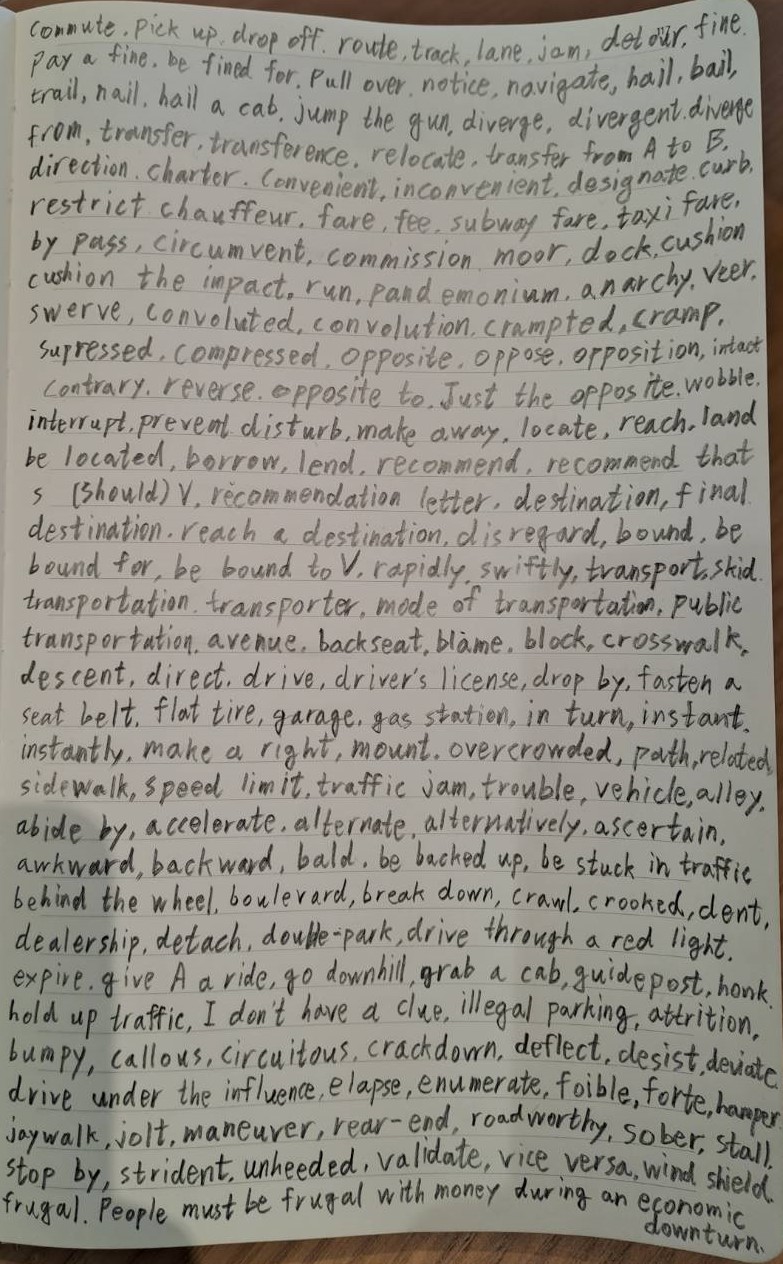 commute. pick up. drop off. route, track, lane, jam, detour, fine.
pay a fine. be fined for. Pull over. notice, navigate, hail, bail,
trail, nail. hail a cab. jump the gun, diverge, divergent. diverge
from, transfer, transference. relocate. transfer from A to B.
direction. charter. Convenient, inconvenient, designate. curb.
restrict chauffeur, fare, fee, subway fare, taxi fare,
by pass, circumvent, commission moor, dock, cushion
cushion the impact, run, pand emonium. anarchy. veer.
swerve, convoluted, convolution. crampted, cramp.
supressed. compressed. opposite. oppose. opposition, intact
contrary. reverse. opposite to. Just the oppos ite. wobble.
interrupt. prevent. disturb, make away, locate, reach. land
be located, borrow, lend, recommend, recommend that
s (should) V, recommendation letter, destination, final
destination. reach a destination, disregard, bound, be
bound for, be bound to V. rapidly, swiftly, transport, skid.
transportation. transporter, mode of transportation, public
transportation, avenue, backseat, blame, block, crosswalk,
descent, direct, drive, driver's license, drop by, fasten a
seat belt, flat tire, garage, gas station, in turn, instant,
instantly, make a right, mount. overcrowded, path, related
sidewalk, speed limit, traffic jam, trouble, vehicle, alley,
abide by, accelerate, alternate, alternatively, ascertain,
awkward, backward, bald. be backed up, be stuck in traffic
behind the wheel, boulevard, break down, crawl, crooked, dent,
dealership, detach, double-park, drive through a red light.
expire. give A a ride, go downhill, grab a cab, guidepost, honk.
hold up traffic, I don't have a clue, illegal parking, attrition,
bumpy, callous, circuitous, crackdown, deflect, desist, deviate.
drive under the influence, elapse, enumerate, foible, forte, hamper
jaywalk, jolt, maneuver, rear-end, roadworthy, sober, stall,
stop by, strident, unheeded, validate, vice versa, wind shield,
frugal. People must be frugal with money during an economic
downturn.